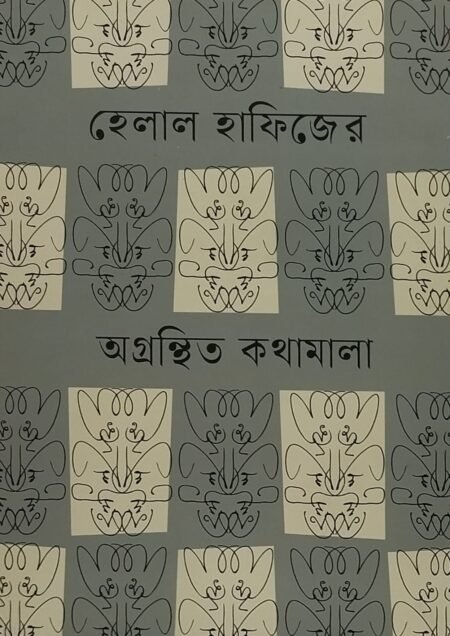 হেলাল হাফিজের
অগ্রন্থিত কথামালা